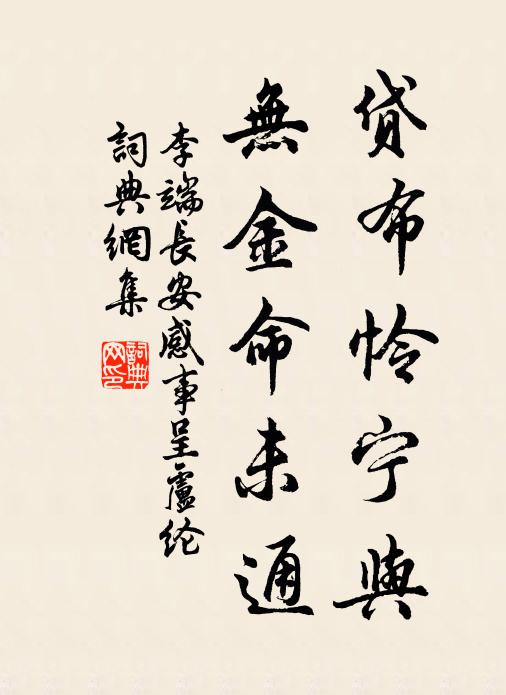 貸布怜宁與
無金命未通
李端長安感事呈盧纶
詞典網集
詞典
网印